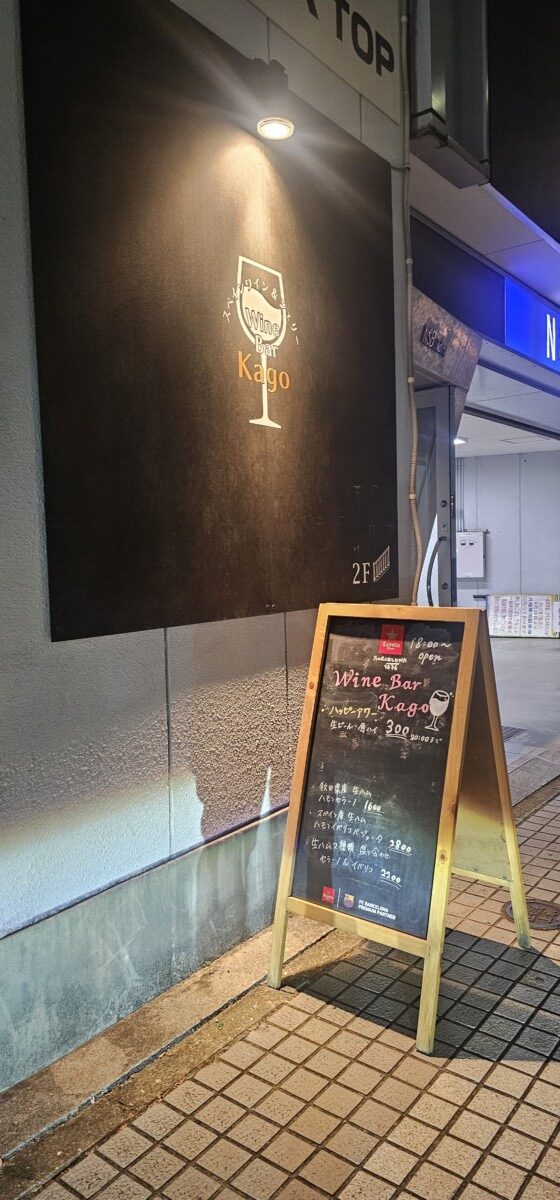 TOP
スペインワイン&シェリー
Wine
Bar
Kago
2F
N
Estrella
BARCELONA
1876
18:00〜
open
Wine Bar
Kago
ハッピーアワー
300
20:00まで
・秋田県産 生ハム
ハモンセラーノ 1600
・スペイン産 生ハム
ハモンイベリコベジョータ 2800
・生ハム2種類 盛り合わせ
セラーノ&イベリコ 2200
FC BARCELONA
PREMIUM PARTNER